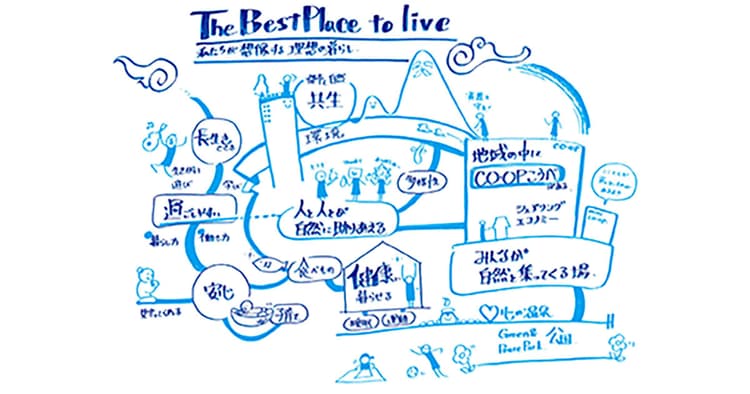 The Best Place to live
私たちが想像する理想の暮らし
都市と自然
共生
環境
長生きできる
生きがい
遊び
学び
過ごしやすい
暮らし方
働き方
多様性
人と人とが
自然に助けあえる
地域の中に
CO-OPこうべ
がある
シェアリング
エコノミー
CO-OP
みんなが
自然と集ってくる場
食べもの
健康に
暮らせる
安心
子育て
見守ってくれる
心の温泉
Green &
Peace Park 公園